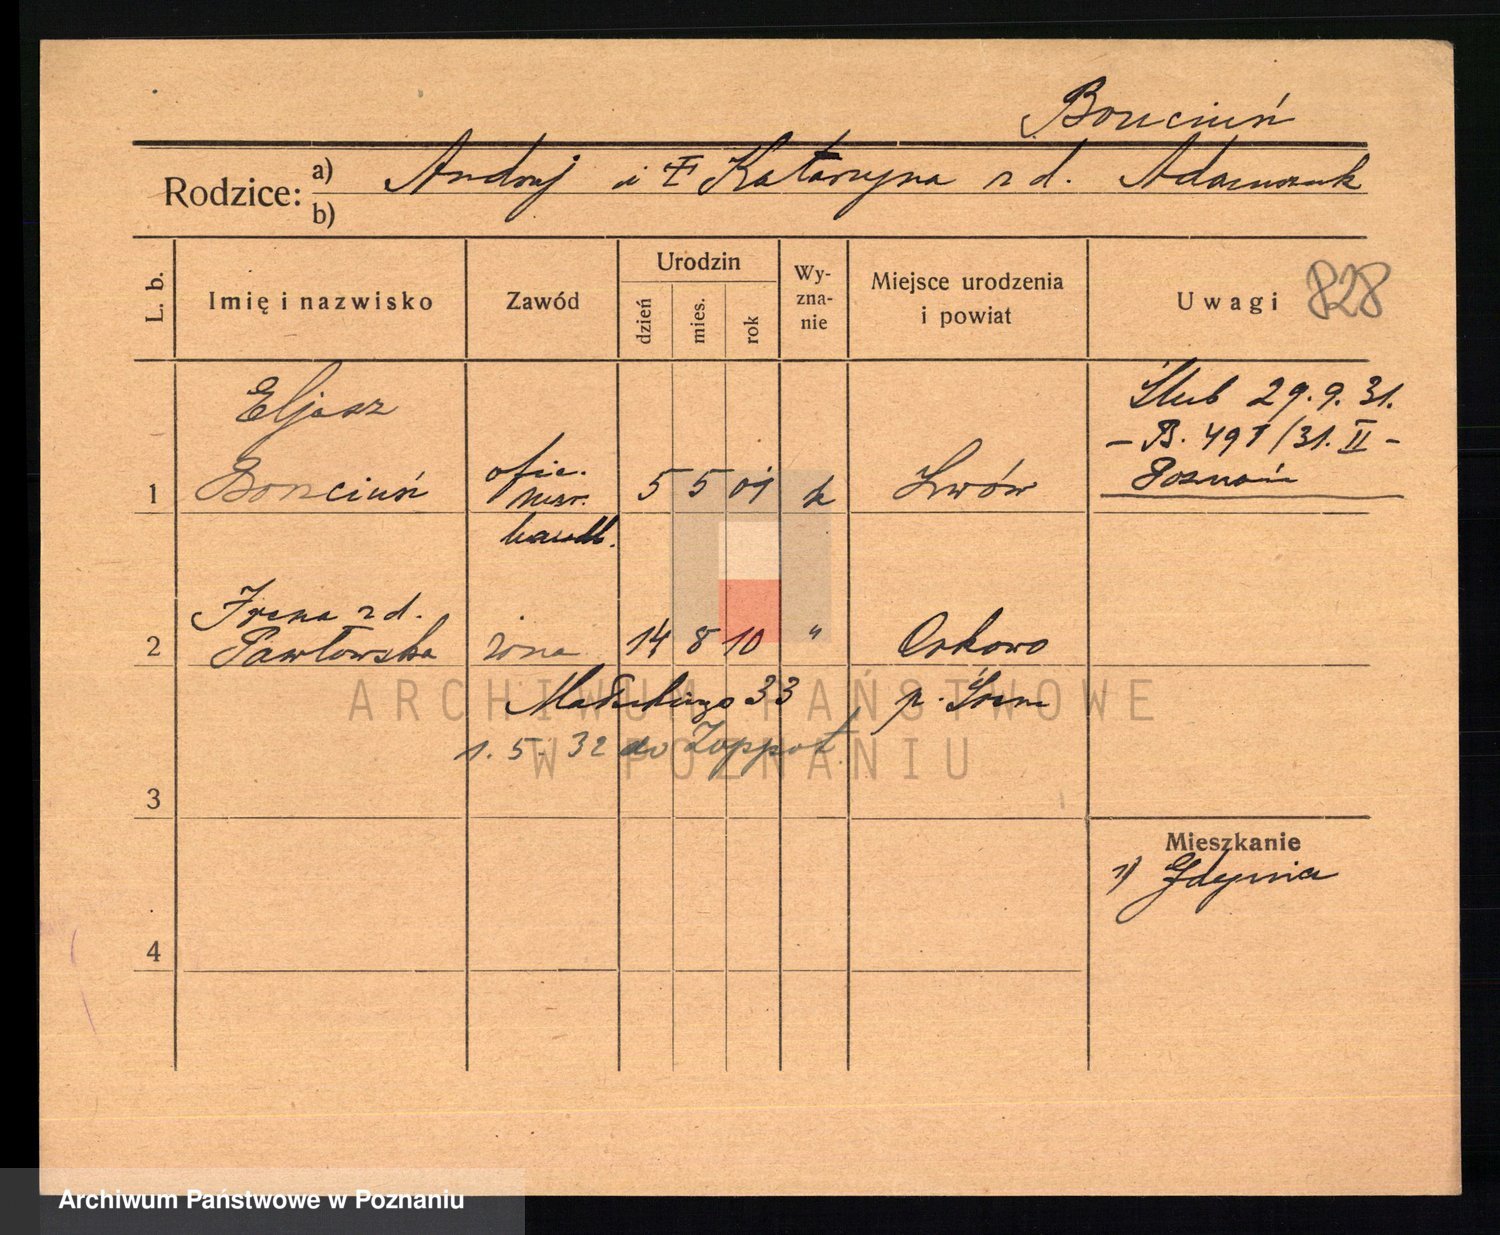 Bonciuń
Rodzice: a) Andrzej i Katarzyna z d. Adamczak
b)
L. b.
Imię i nazwisko
Zawód
Urodzin
dzień
mies.
rok
Wy-
zna-
nie
Miejsce urodzenia
i powiat
Uwagi 828
Eljasz
1 Bonciuń
ofic.
mar.
handl.
5 5 01 k Lwów
Ślub 29.9.31.
Poznań
Irena z d.
2 Pawłowska żona 14 8 10 " Orkowo
33
p. Śrem
1. 5. 32 do Zoppot
3
Mieszkanie
1) Gdynia
4
ARCHIWUM PAŃSTWOWE
W POZNANIU
Archiwum Państwowe w Poznaniu